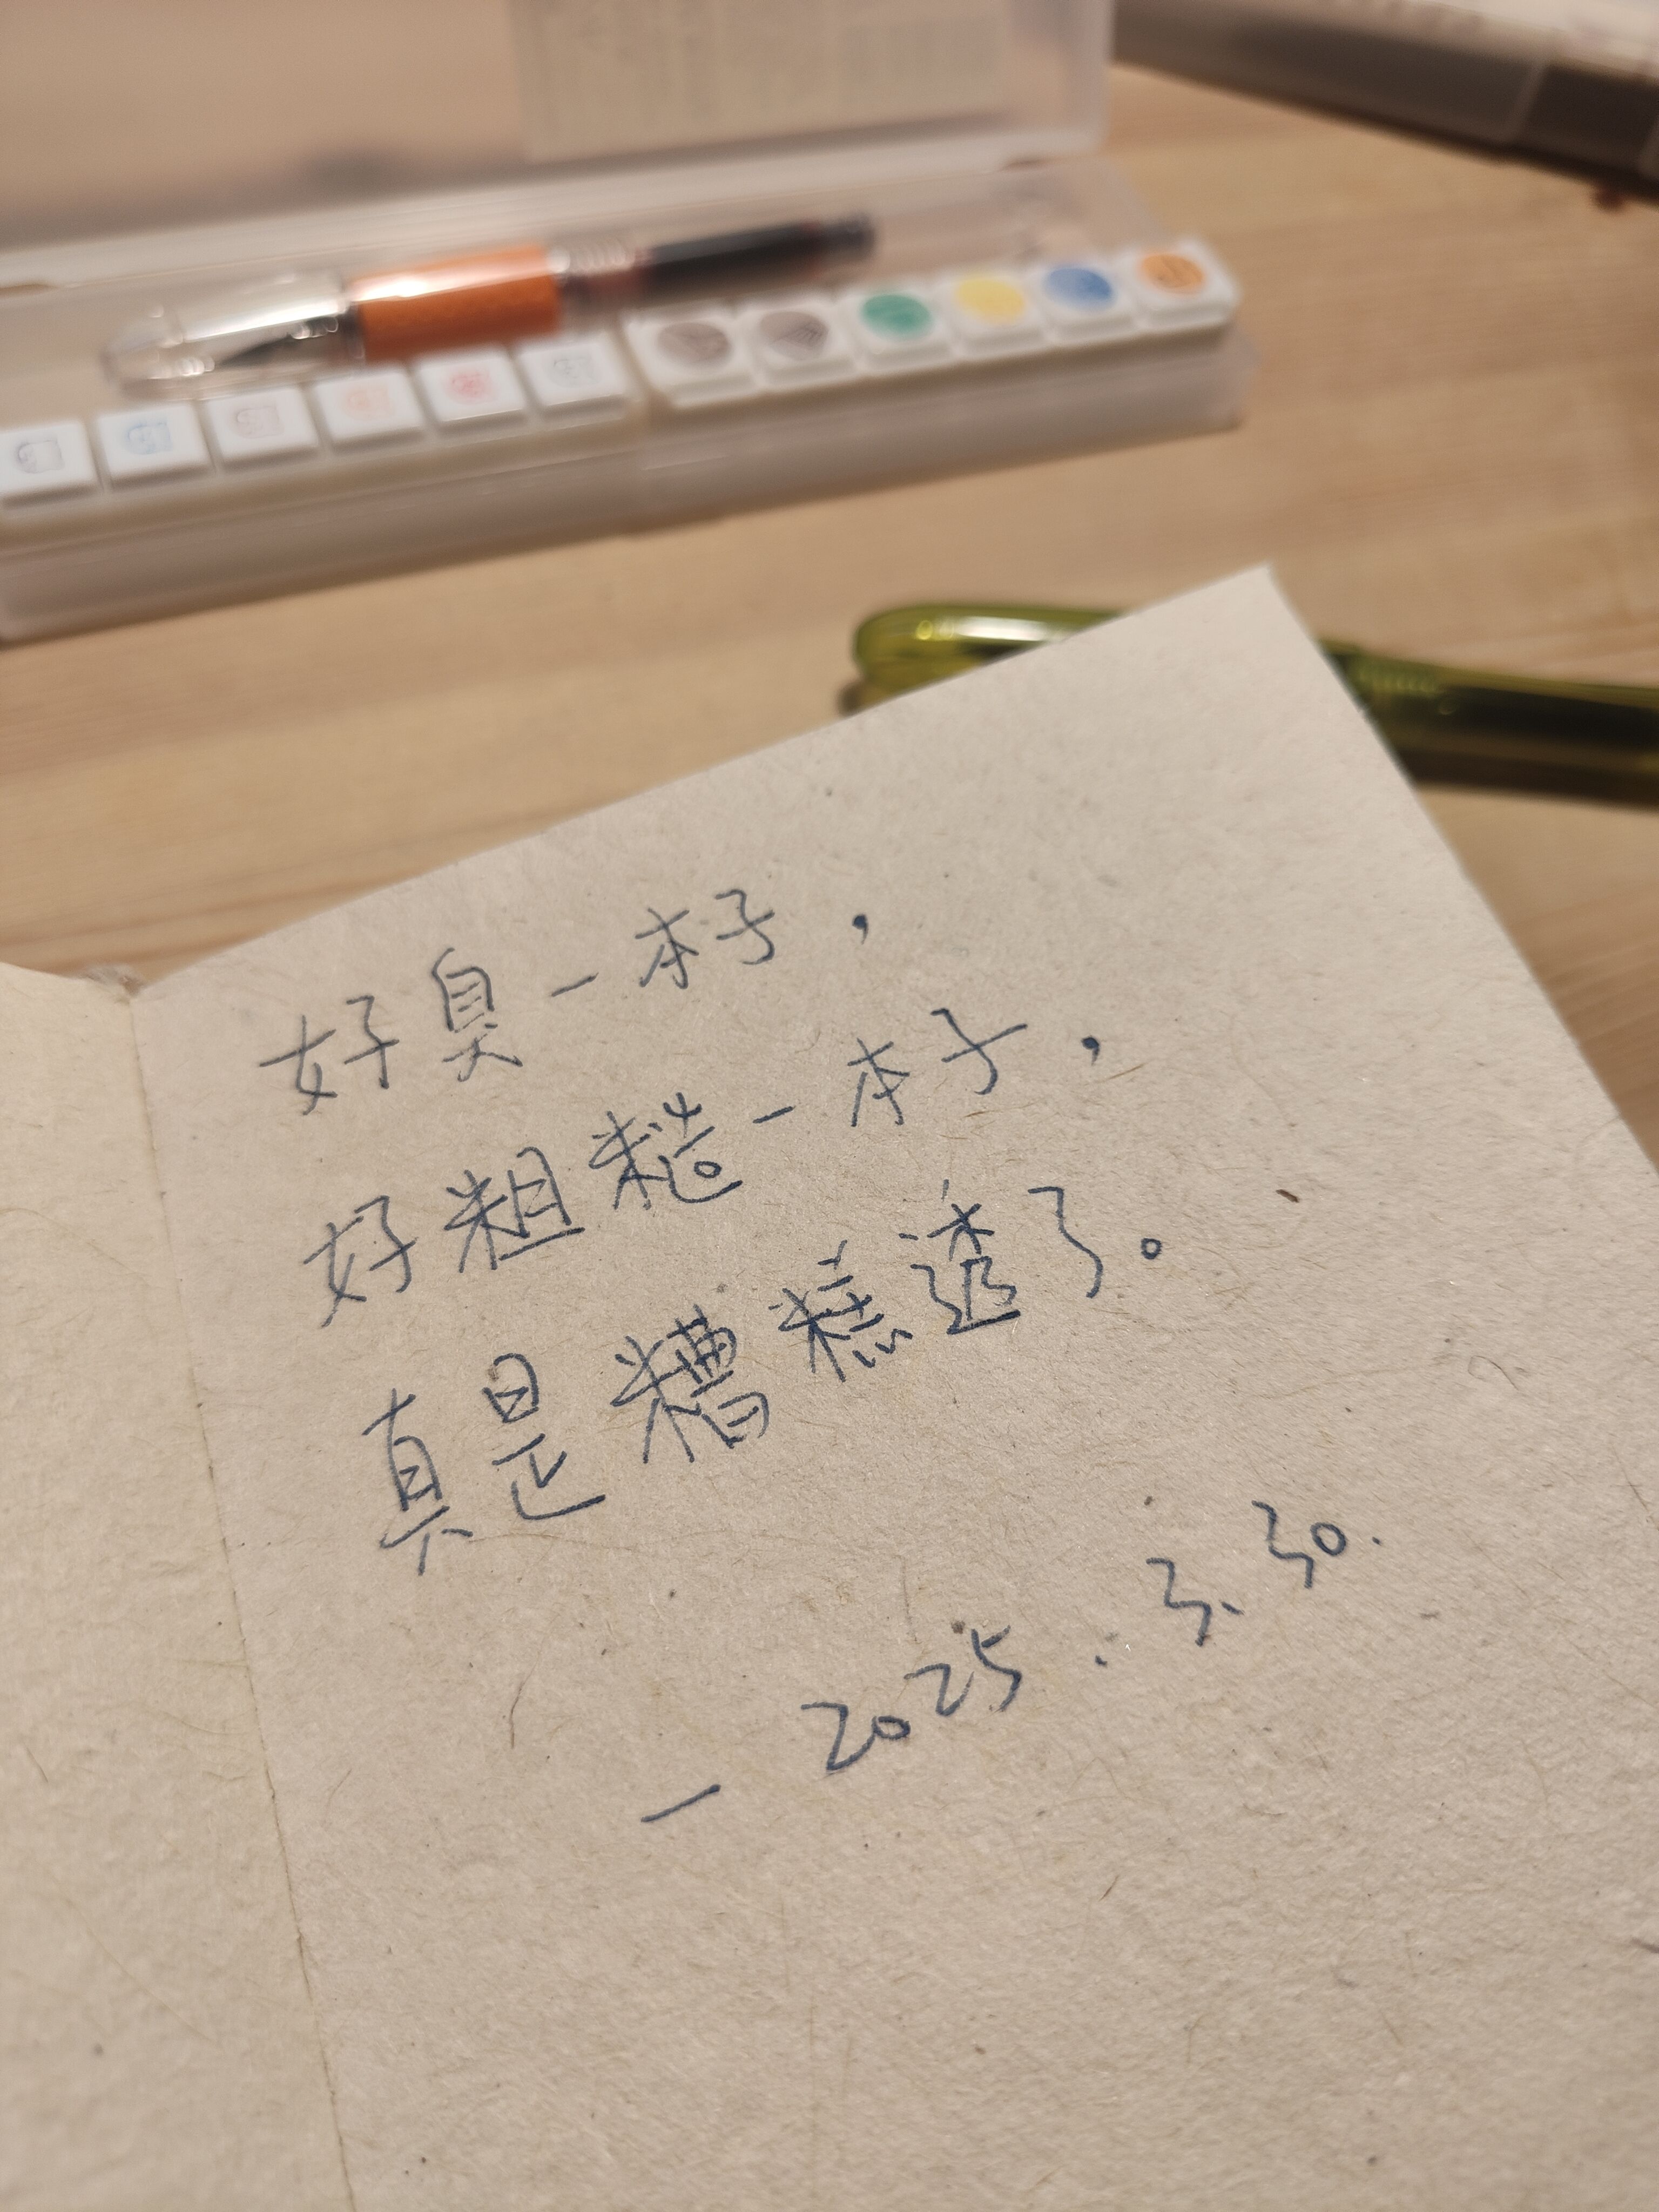 好臭一本子，
好粗糙一本子，
真是糟糕透了。
— 2025.3.30.